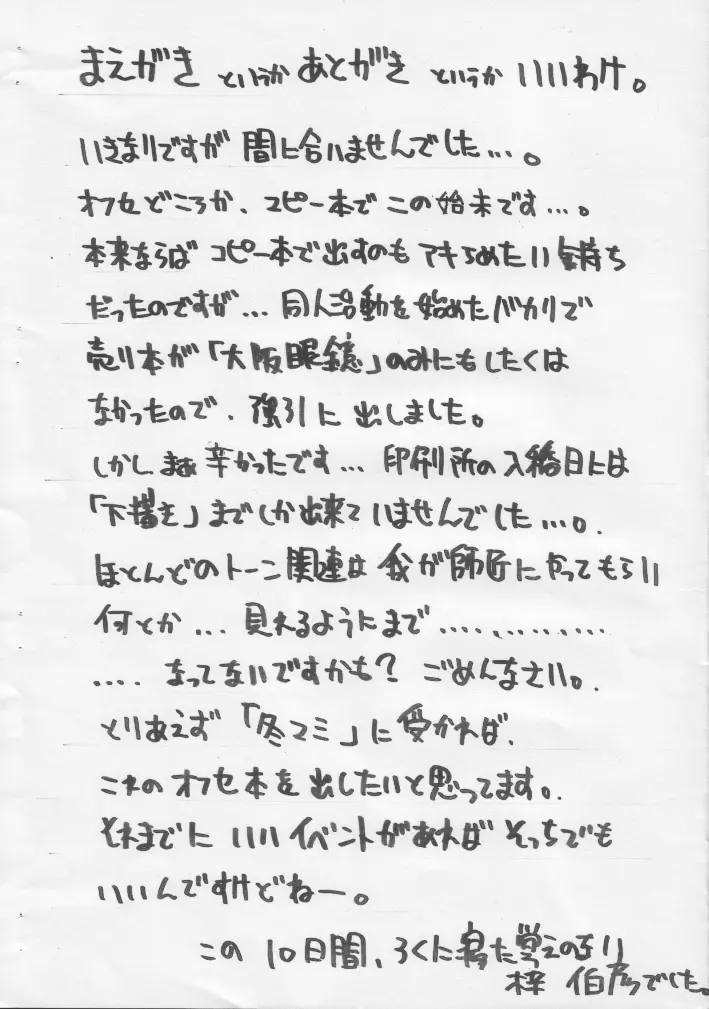 まえがき というか あとがき というか いいわけ。
いきなりですが 間に合いませんでした…。
オフセどころか、コピー本で この始末です…。
本来ならば コピー本で出すのも アキらめたい気持ち
だったのですが… 同人活動を始めたバカリで
売り本が「大阪眼鏡」のみにもしたくは
なかったので、強引に 出しました。
しかしまぁ 辛かったです… 印刷所の入稿日には
「下描き」までしか出来ていませんでした…。
ほとんどのトーン関連は 我が師匠にやってもらい
何とか… 見れるようにまで……………
…. なってないですかも? ごめんなさい。
とりあえず「冬コミ」に受かれば、
これの オフセ本を 出したいと思ってます。
それまでに いいイベントがあれば そっちでも
いいんですけどねー。
この 10日間、ろくに寝た覚えのない
梓 伯彦でした。